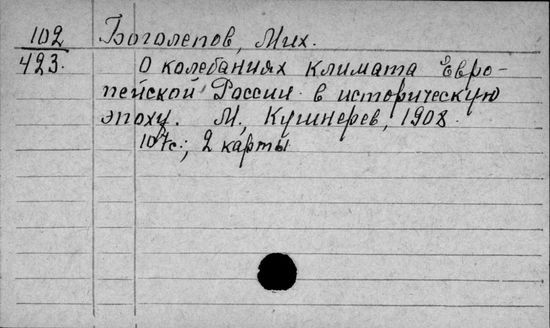 102 Боголепов, Мих.
423. О колебаниях климата Евро-
пейской России в историческую
эпоху. М., Кушнерев, 1908.
107с.; 2 карты